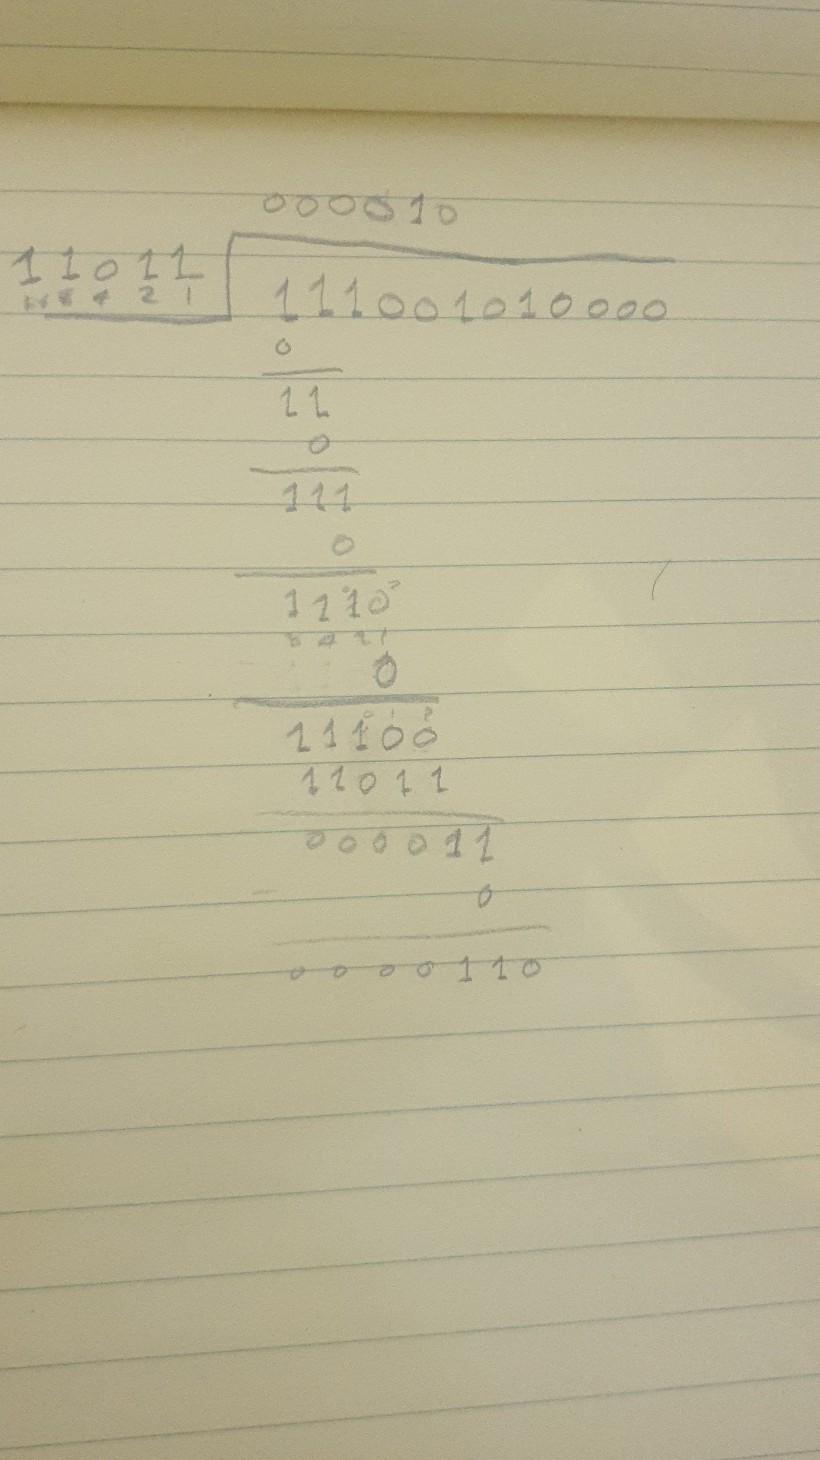 000010
11011 111001010000
16 8 4 2 1
0
11
0
111
0
1110
8 4 2 1
0
11100
11011
000011
0
0000110